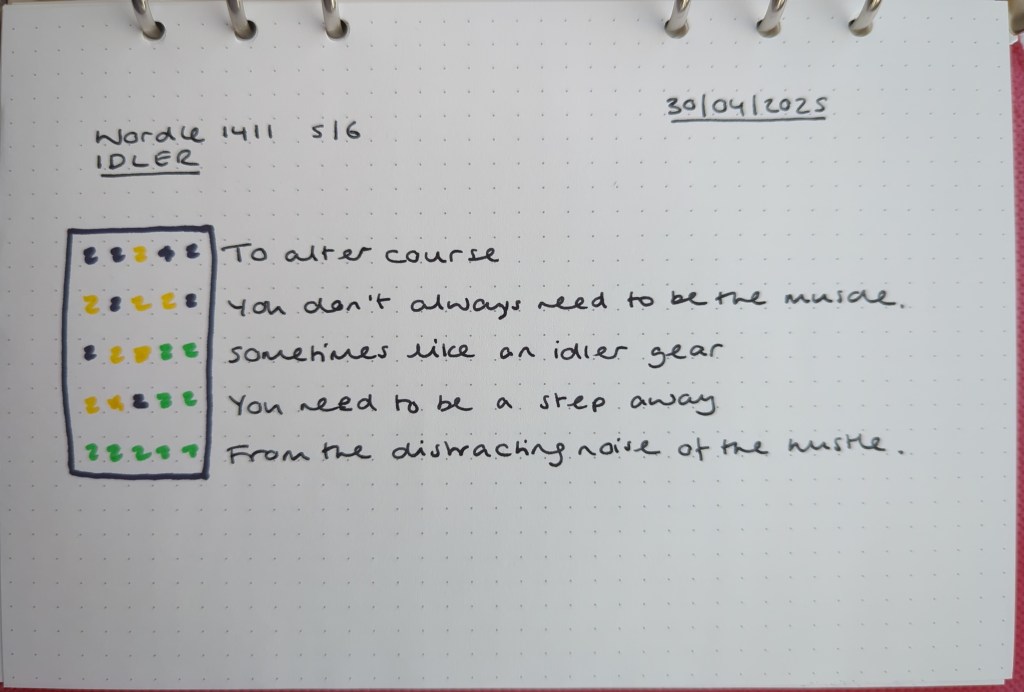 30/04/2025
Wordle 1411 5/6
IDLER
To alter course
You don't always need to be the muscle.
Sometimes like an idler gear
You need to be a step away
From the distracting noise of the hustle.